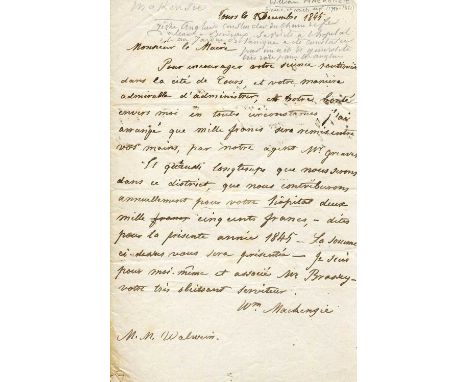 Makenzie
William MACKENZIE
Tours le Decembre 1845
Monsieur le Maire
Pour encourager votre science particuliere
dans la cité de Tours, et votre maniere
admirable d'administrer, et votre bonté
envers moi en toutes circonstances j'ai
arrangé que mille francs sera remis entre
vos mains, par notre agent Mr Greaves
Si aussi longtemps que nous serons
dans ce district, que nous contribuerons
annuellement pour votre hôpital deux
mille francs cinq cents francs, - dites
pour la présente année 1845 - La somme
ci-dessus vous sera présentée - Je suis
pour moi-même et associé Mr Brassey
votre très obeissant serviteur
Wm Mackenzie
M. M. Walwein.